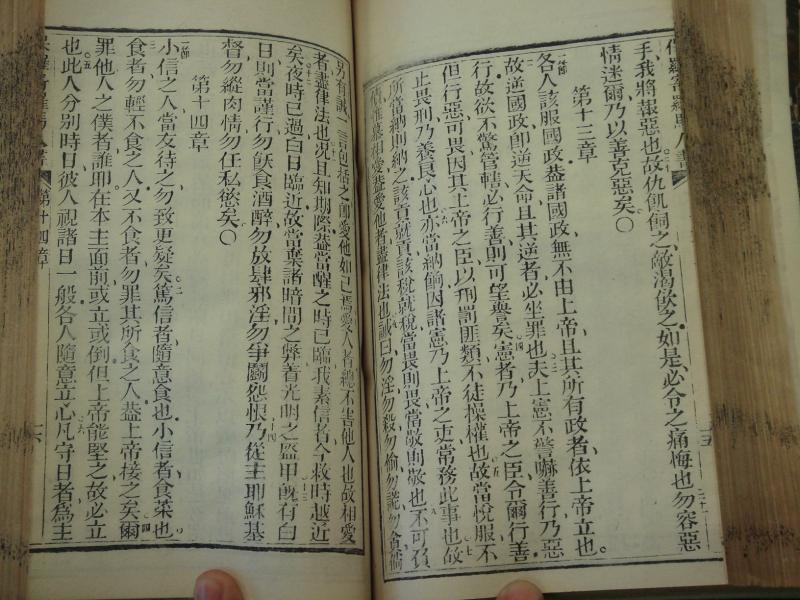 保羅寄羅馬人書
手我將報惡也故仇飢飼之敵渴飲之如是必令之痛悔也勿容惡
情迷爾乃以善克惡矣○
第十三章
各人該服國政葢諸國政無不由上帝且其所有政者依上帝立也。
故逆國政卽逆天命且其逆者必坐罪也夫上憲不警嚇善行乃惡
行故欲不驚管轄必行善則可望譽矣憲者乃上帝之臣令爾行善
但行惡可畏因其上帝之臣以刑罰匪類不徒操權也故當悅服不
止畏刑乃養良心也亦當納餉因諸憲乃上帝之吏常務此事也故
所當納則納之該貢就貢該稅就稅當畏則畏當敬則敬也不可負
債惟基相愛葢愛他者盡律法也誡曰勿淫勿殺勿偷勿謊勿貪倘
別有誡一言包括之卽愛他如己焉愛人者總不害他人也故相愛
者盡律法也況且知期際葢當醒之時已臨我素信者今救時越近
矣夜時已過白日臨近故當棄諸暗間之弊著光明之盔甲旣有白
日則當謹行勿飫食酒醉勿放肆邪淫勿爭鬬怨恨乃從主耶穌基
督勿縱肉情勿任私慾矣○
第十四章
小信之人當友待之勿致更疑矣篤信者隨意食也小信者食菜也
食者勿輕不食之人又不食者勿罪其所食之人葢上帝接之矣爾
罪他人之僕者誰耶在本主面前或立或倒但上帝能堅之故必立
也此人分別時日彼人視諸日一般各人隨意立心凡守日者為主
第十四章